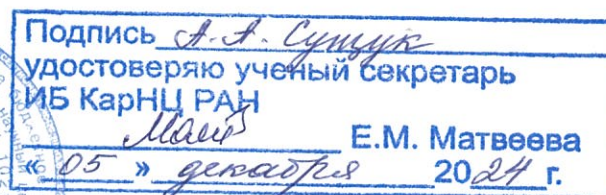 Подпись А.А. Сущук
удостоверяю ученый секретарь
ИБ КарНЦ РАН
Е.М. Матвеева
« 05 » декабря 2024 г.